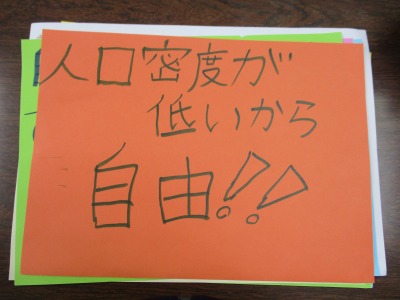 人口密度が
低いから
自由!!